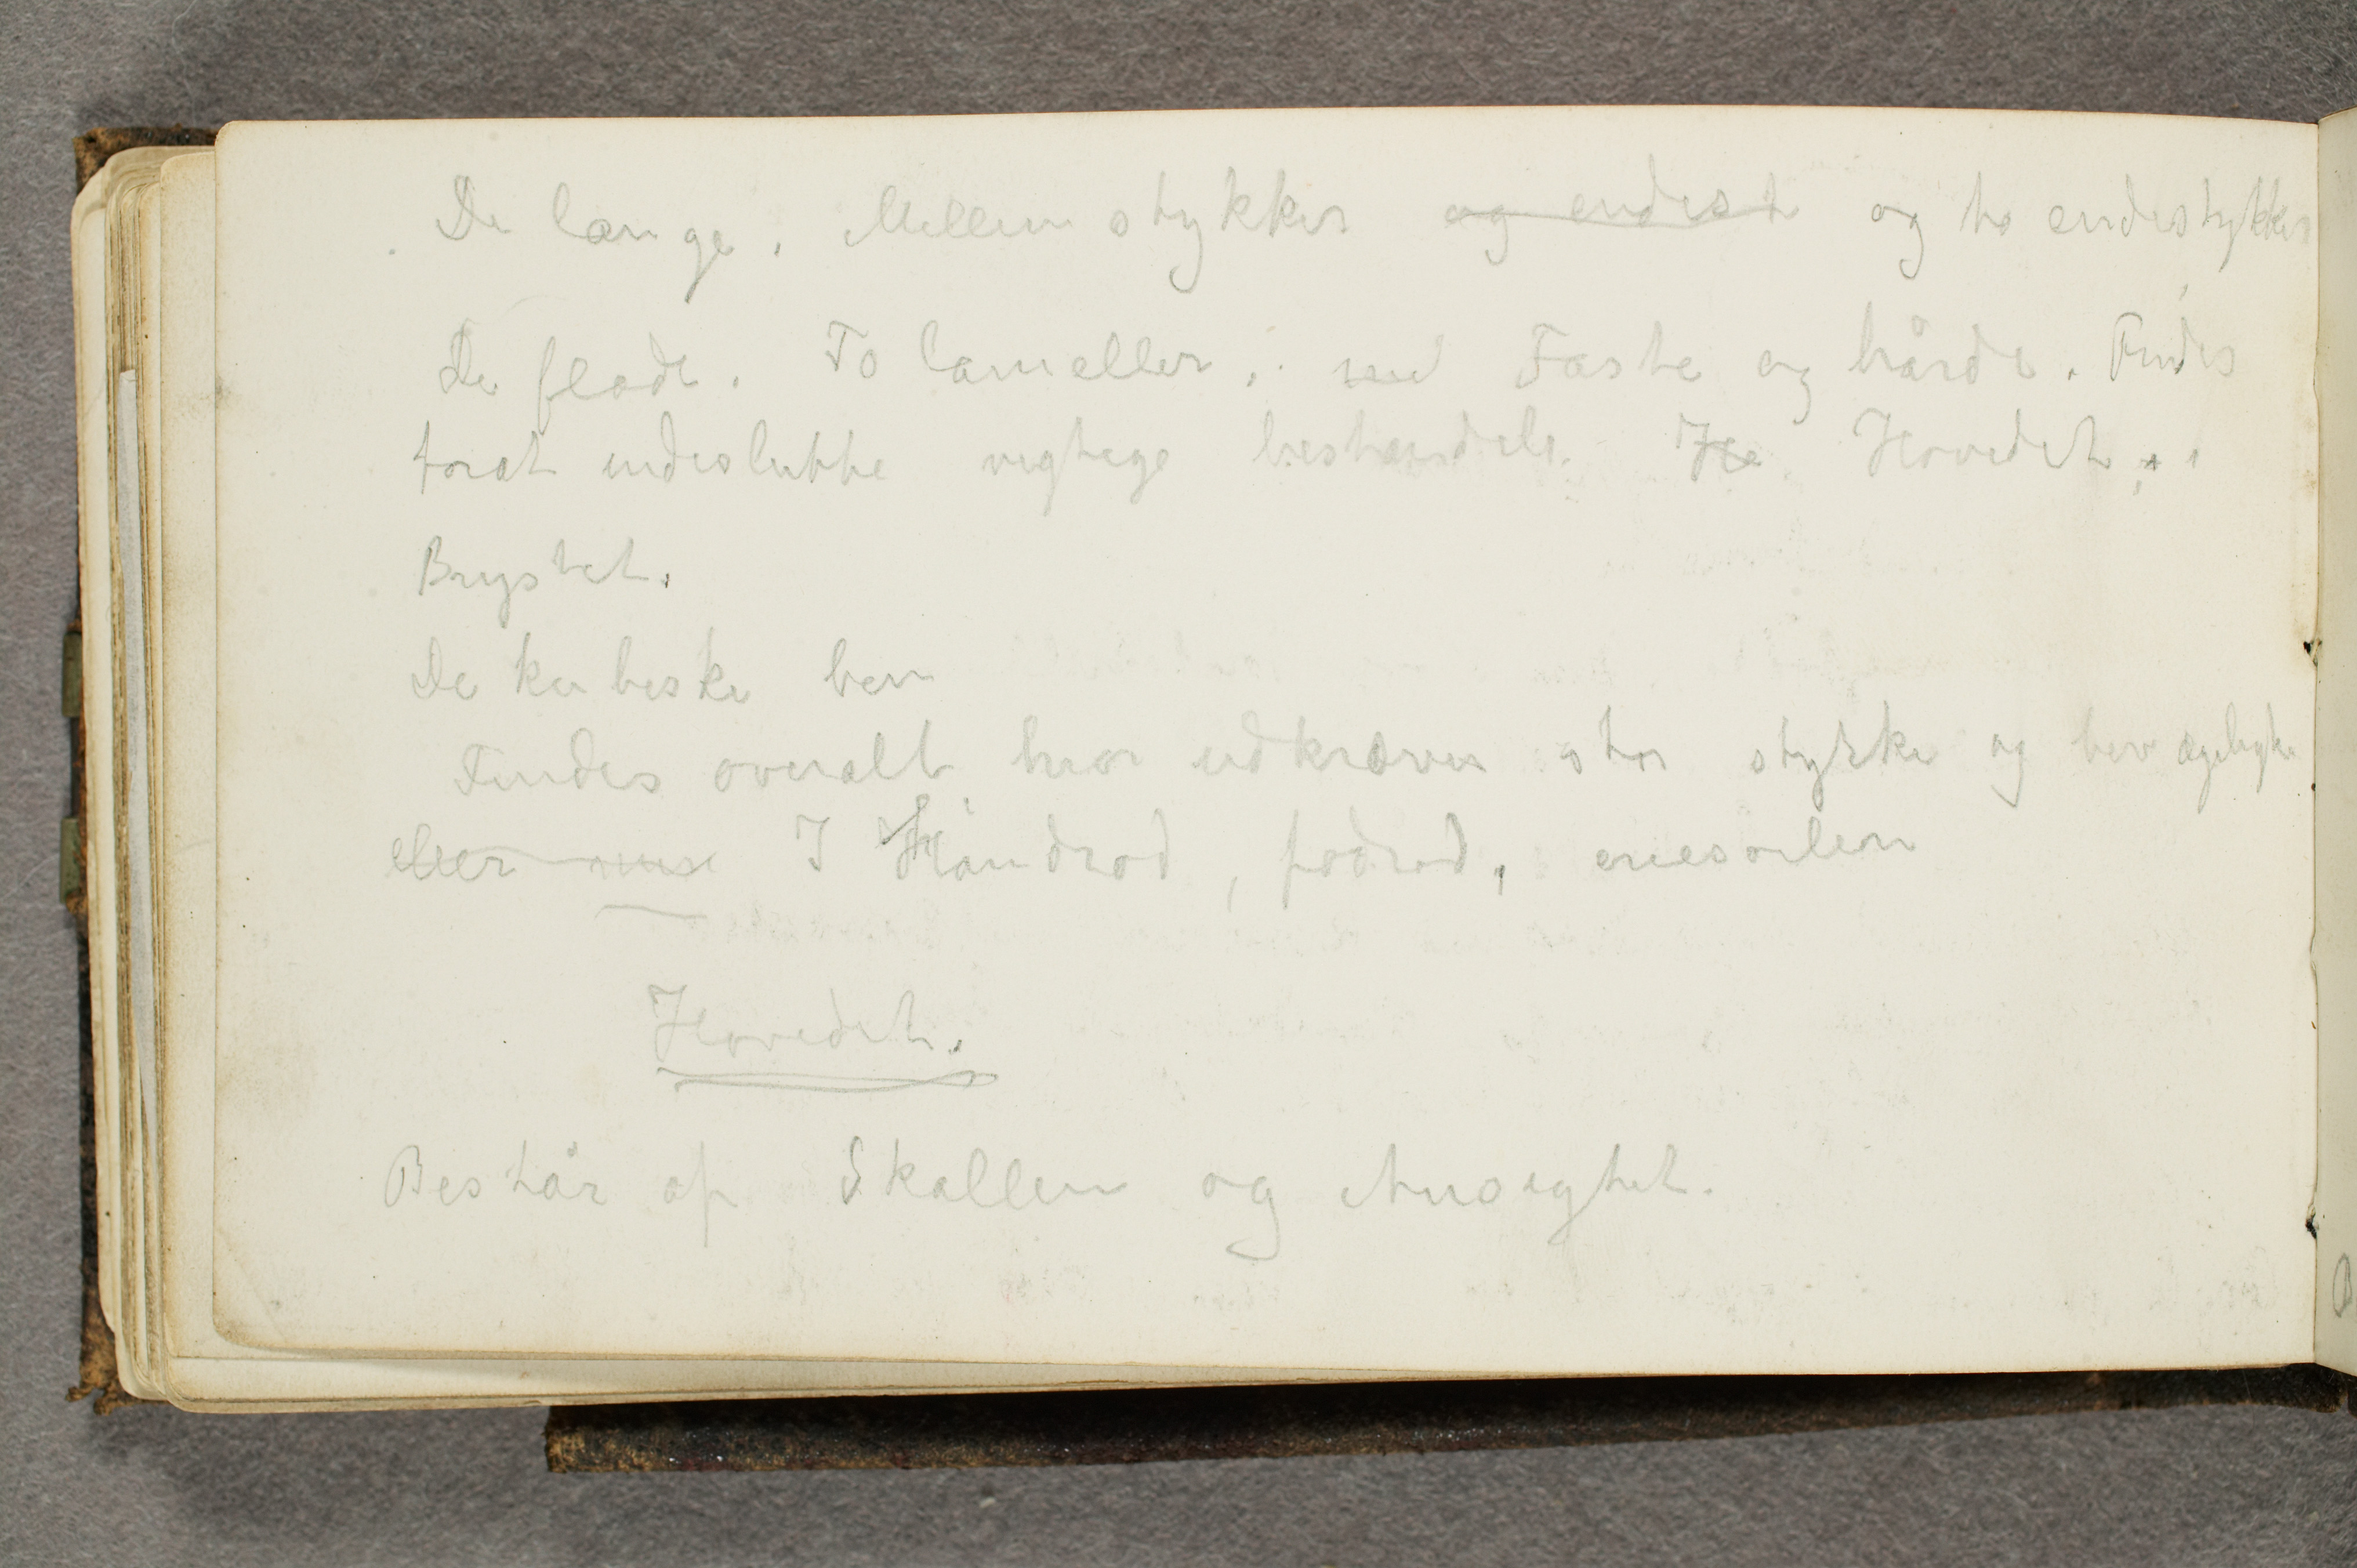 De lange. Mellemstykker og endest og to endestykker
De flade. To lameller. med Faste og hårde. Findes
forat indeslutte vigtige bestandele. He Hovedet.
Brystet.
De kubeske ben
Findes overalt hvor udkræves stor styrke og bevægelighe
eller I Håndrod, fodrod,
Hovedet.
Består af Skallen og Ansigtet.